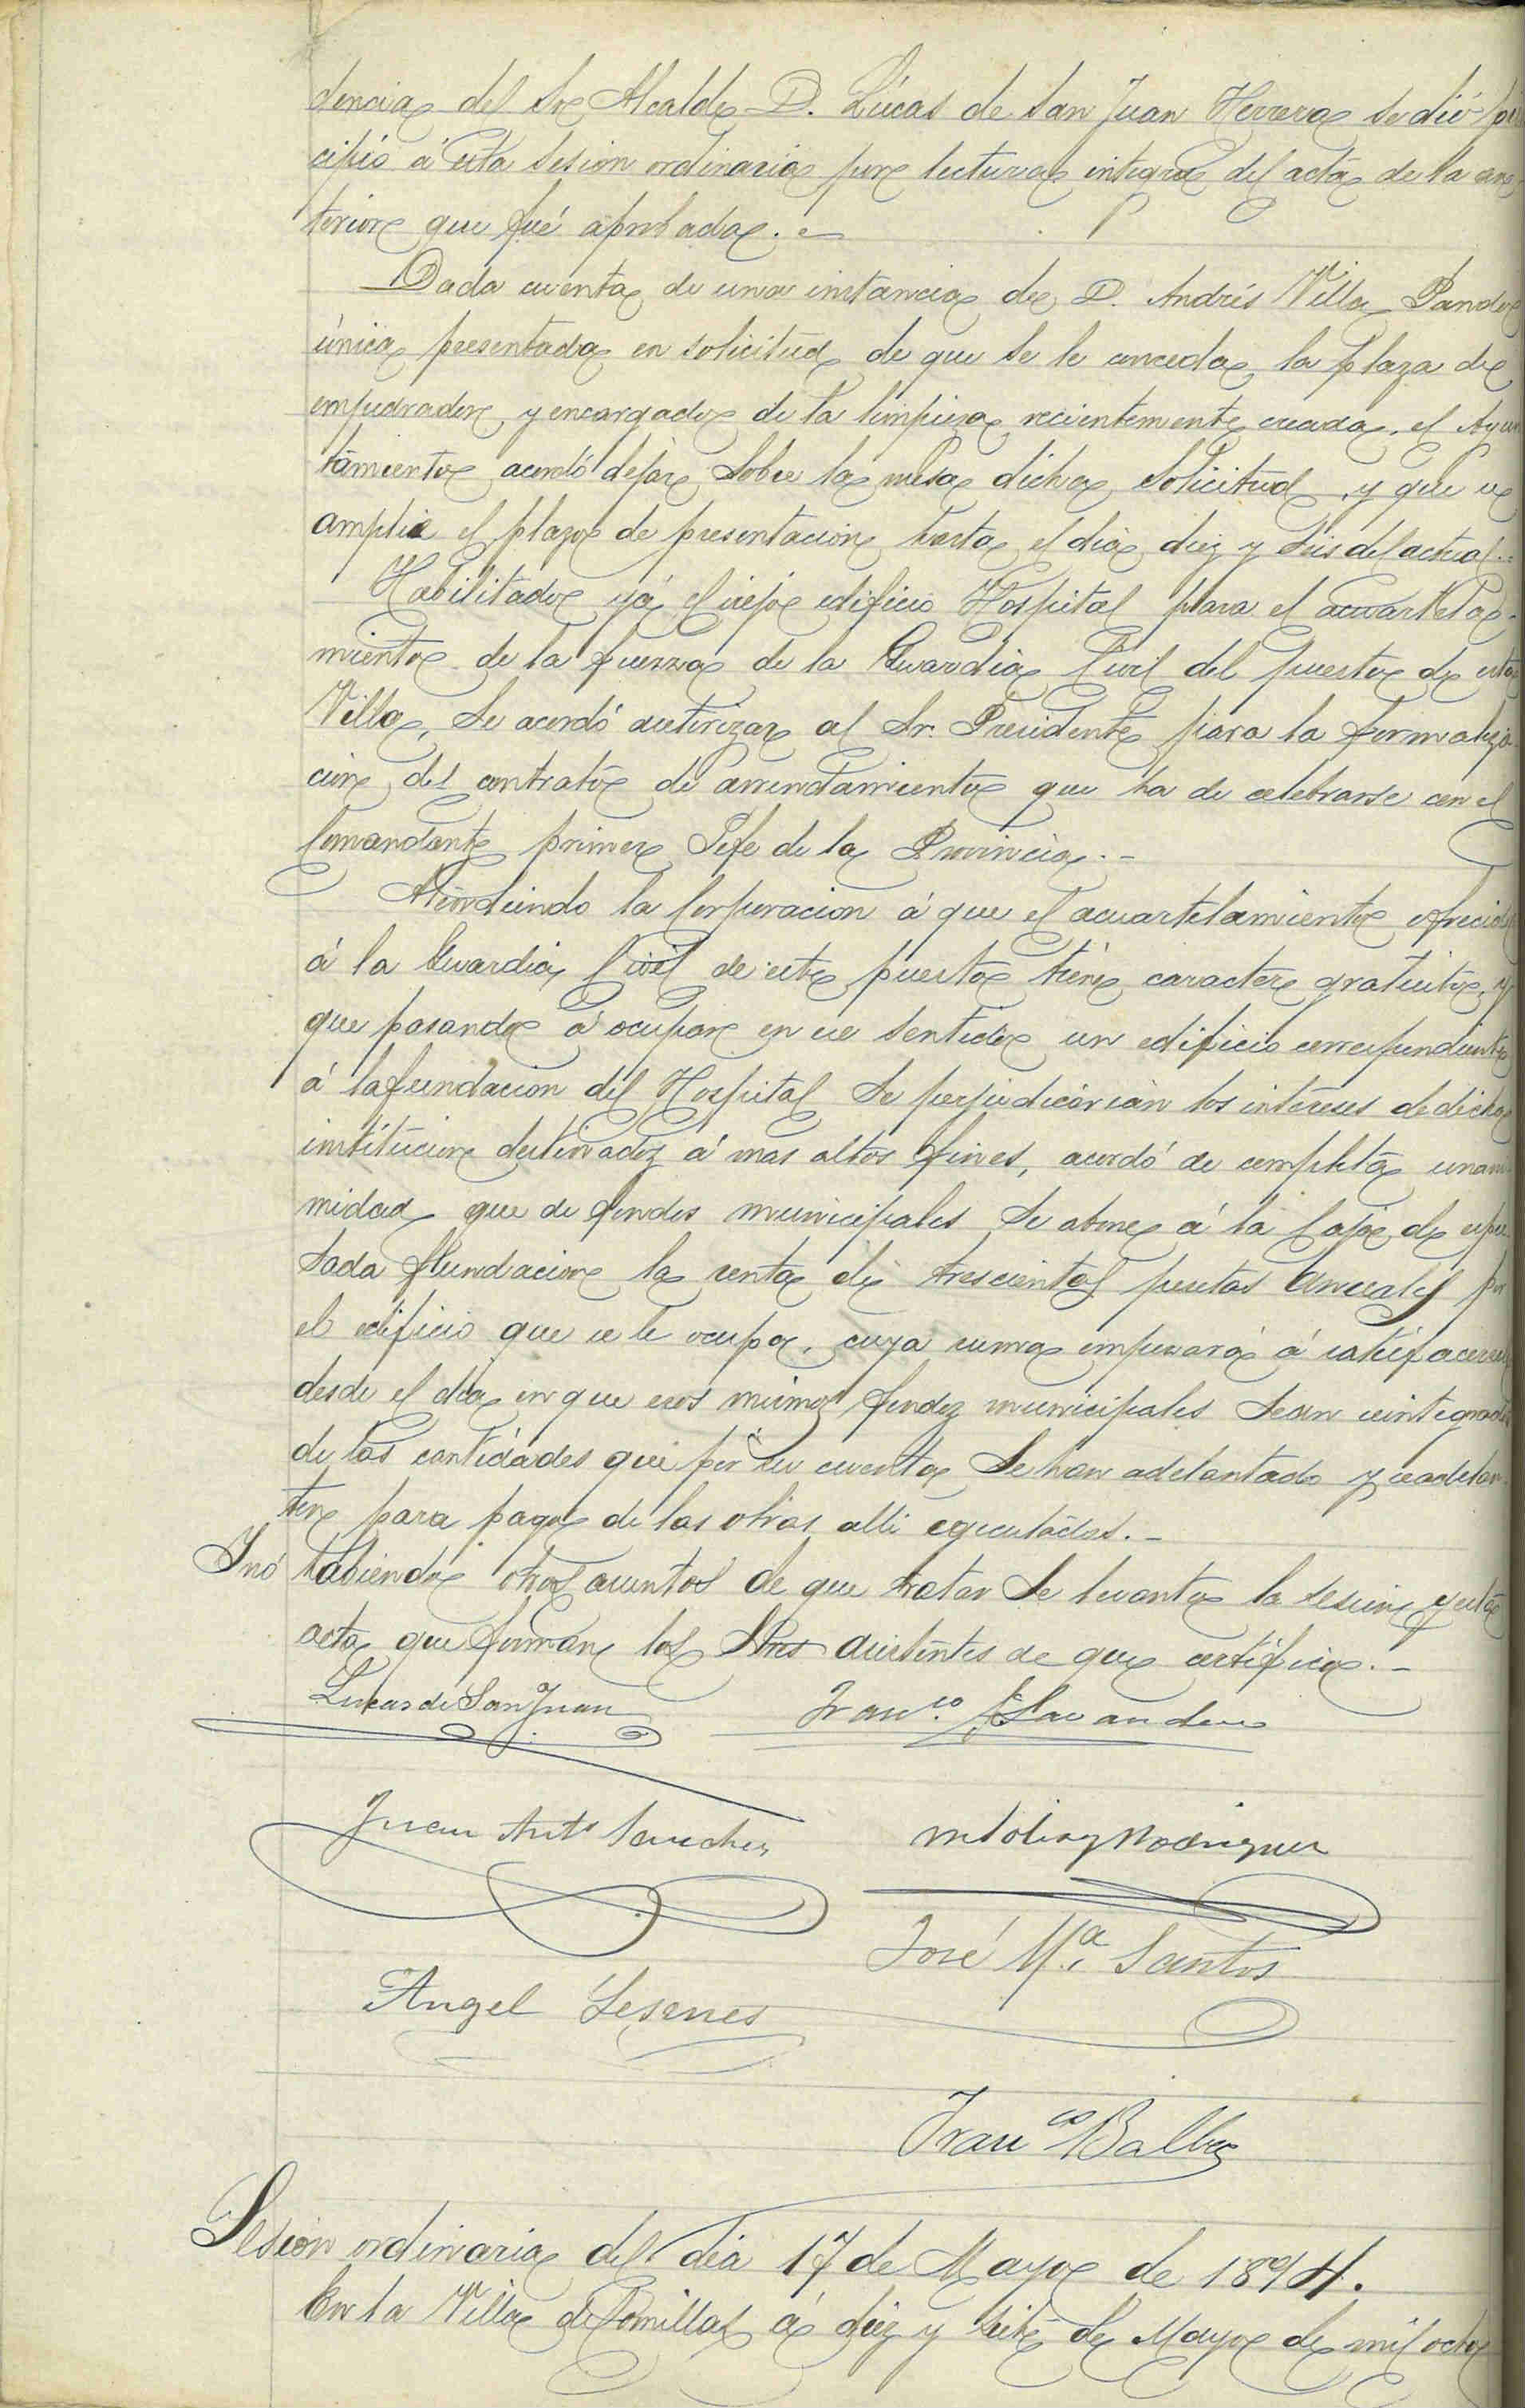 dencia del Sr Alcalde D. Lúcas de San Juan Herrera se dió prin
cipio á esta sesion ordinaria por lectura integra del acta de la an
terior que fué aprobada.
Dada cuenta de una instancia de D. Andrés Villa Pando
única presentada en solicitud de que se le conceda la plaza de
empedrador y encargado de la limpieza recientemente creada, el Ayun
tamiento acordó dejar sobre la mesa dicha solicitud, y que se
amplie el plazo de presentacion hasta el dia diez y seis del actual.
Habilitado yá el viejo edificio Hospital para el acuartela-
miento de la fuerza de la Guardia Civil del puesto de esta
Villa, se acordó autorizar al Sr. Presidente para la formaliza-
cion del contrato de arrendamiento que ha de celebrarse con el
Comandante primer Jefe de la Provincia.-
Atendiendo la Corporacion á que el acuartelamiento ofrecido
á la Guardia Civil de este puesto tiene caracter gratuito, y
que pasando á ocupar en ese sentido un edificio correspondiente
á la fundacion del Hospital se perjudicarian los intereses de dicha
institucion destinados á mas altos fines, acordó de completa unani-
midad que de fondos municipales se abone á la Caja de
fundacion la renta de trescientas pesetas anuales por
el edificio que se le ocupa, cuya suma empezará á satisfacerse
desde el dia en que esos mismos fondos municipales sean reintegrados
de las cantidades que por su cuenta se han adelantado y se adelan-
ten para pago de las obras alli egecutadas.-
Y nó habiendo otros asuntos de que tratar se levanta la sesion y esta
acta que firman los Sres asistentes de que certifico.-
Lucas de San Juan Franco.
Juan Anto Sanchez Rodriguez
José Ma. Santos
Angel
Franco Balbas
Sesion ordinaria del dia 17 de Mayo de 1894.
En la Villa de Comillas á diez y siete de Mayo de mil ocho